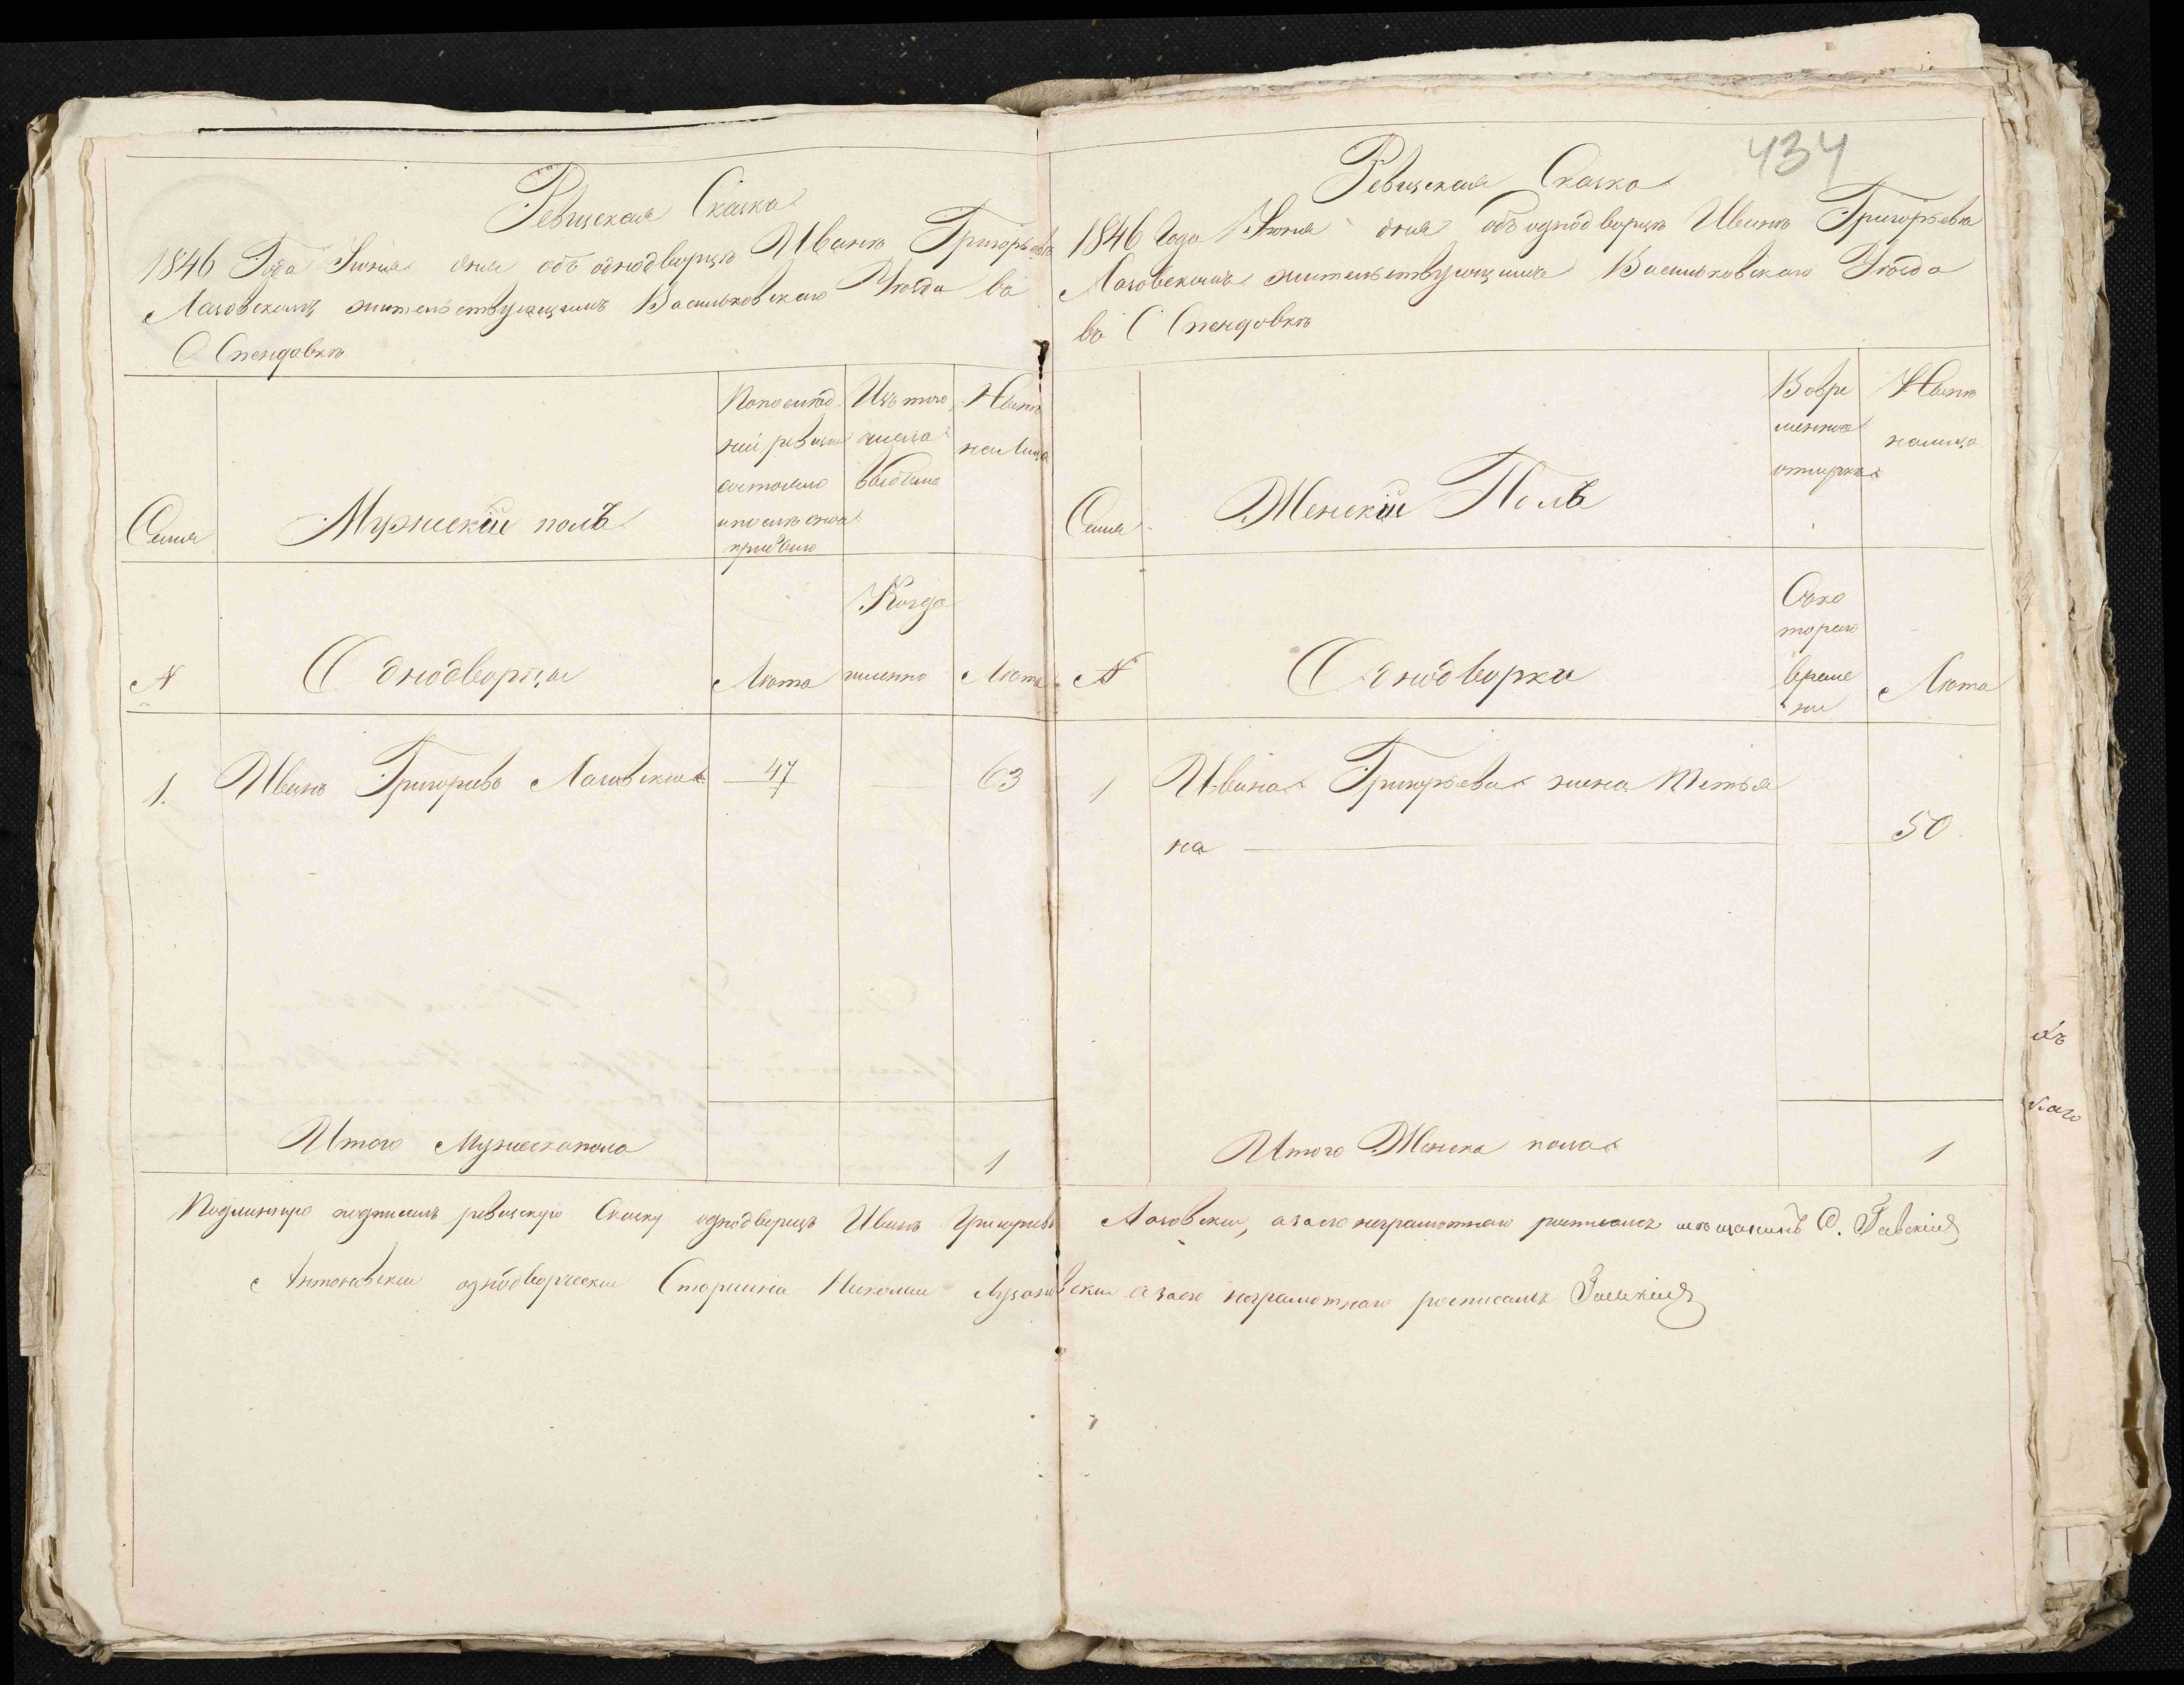 Ревизская Сказка
1846 Года Июня дня объ однодворцѣ Иванѣ Григорьевѣ
Лазовскомъ жительствующимъ Васильковскаго Уѣзда въ
С Спендовкѣ
Семья
Мужескій полъ
По послѣд
ней ревизіи
состояло
и послѣ оной
прибыло
Изъ того
числа
выбыло
Нынѣ
на лица
N
Однодворцы
Лѣта
Когда
именно
Лѣта
1. Иванъ Григорьевъ Лазовскій 47 63
Итого Мужеска пола 1
434
Ревизская Сказка
1846 Года Июня дня объ однодворцѣ Иванѣ Григорьевѣ
Лазовскомъ жительствующимъ Васильковскаго Уѣзда
въ С Спендовкѣ
Семья
Женскій Полъ
Во вре
менной
отлучкѣ
Нынѣ
на лица
N
Однодворки
Съ ко
тораго
време
ни
Лѣта
1 Ивана Григорьева жена Тетья
на 50
Итого Женска пола 1
Подлинную подписалъ ревизскую Сказку однодворецъ Иванъ Григорьевъ Лазовскій, а за его неграмотнаго росписался мѣщанинъ
однодворческій Старшина Николай а за его неграмотнаго росписался